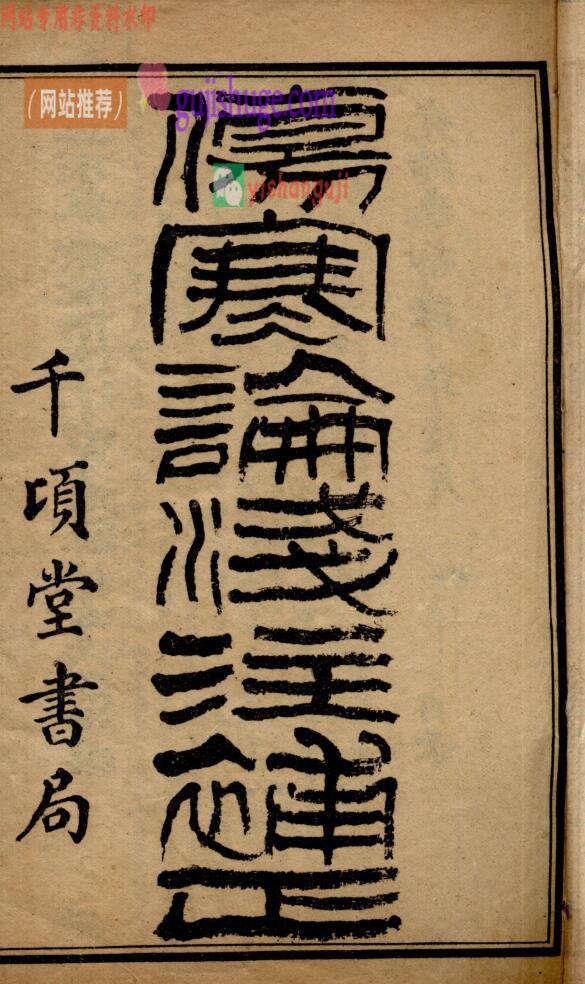 网站专用非资料水印
(网站推荐)
gujishuge.com
yishanguji
傷寒論淺注補正
千頃堂書局